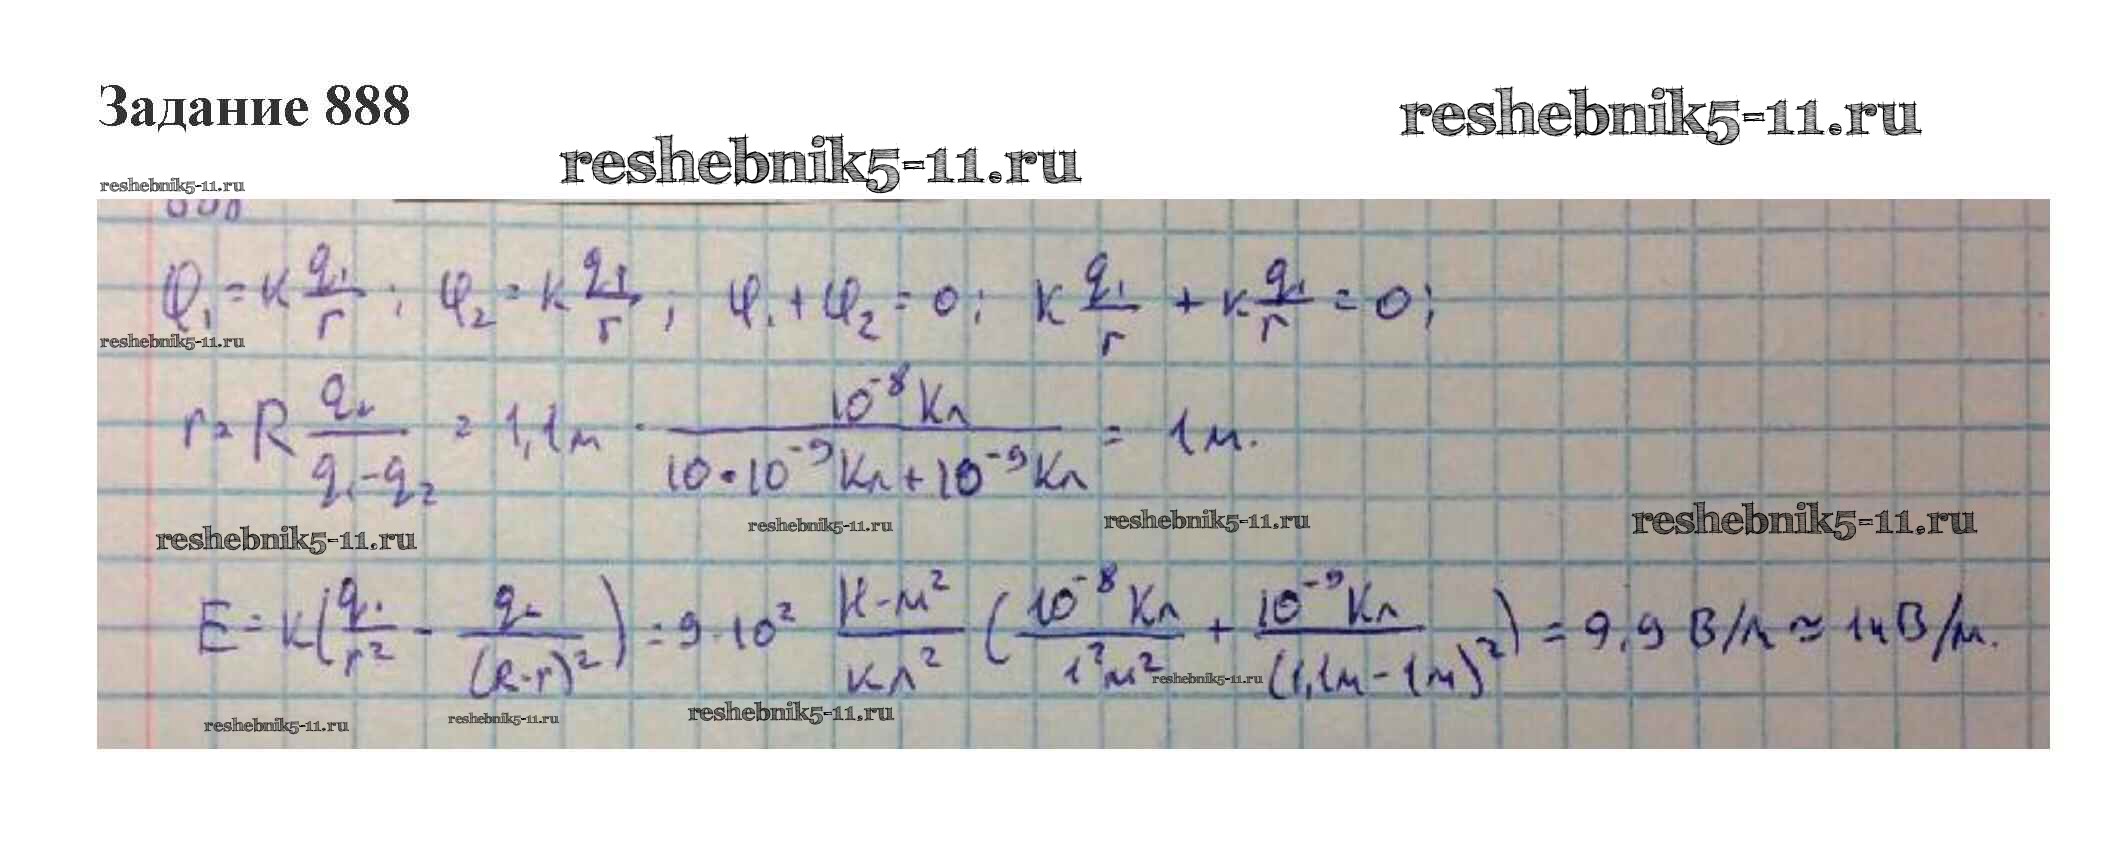 Задание 888
reshebnik5-11.ru
reshebnik5-11.ru
reshebnik5-11.ru
888
φ₁ = к q₁/r ; φ₂ = к q₁/r ; φ₁ + φ₂ = 0; к q₁/r + к q₁/r = 0;
reshebnik5-11.ru
r = R q₁/(q₁-q₂) = 1,1м · 10⁻⁸Кл/(10·10⁻⁹Кл+10⁻⁹Кл) = 1м.
reshebnik5-11.ru
reshebnik5-11.ru
reshebnik5-11.ru
reshebnik5-11.ru
E = к(q₁/r² - q₂/(R-r)²) = 9·10² Н·м²/кл² (10⁻⁸Кл/1²м² + 10⁻⁹Кл/(1,1м-1м)²) = 9,9 В/м ≈ 1кВ/м.
reshebnik5-11.ru
reshebnik5-11.ru
reshebnik5-11.ru
reshebnik5-11.ru